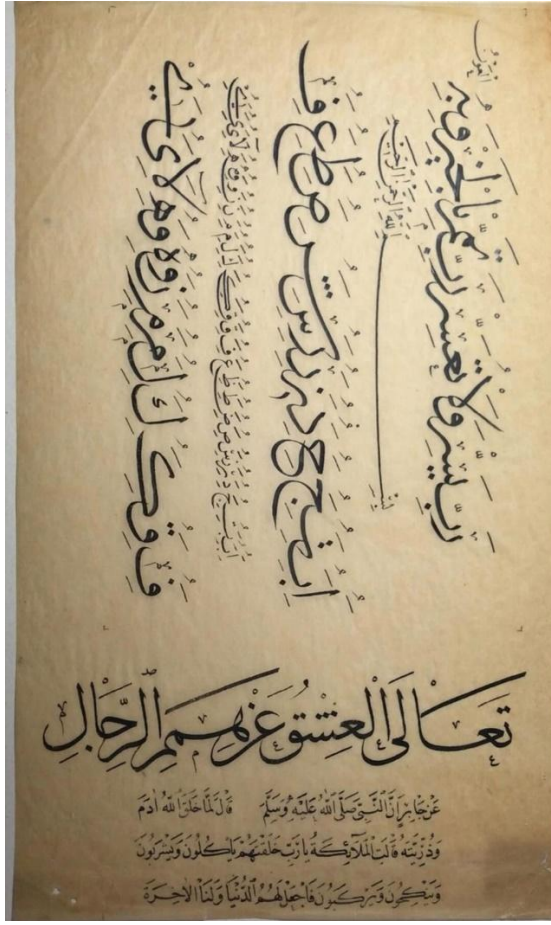 رب يسر ولا تعسر رب تمم بالخير وبه العون
بسم الله الرحمن الرحيم
ا ب ت ج ح د ر س ش ص ط ع ف
ف ق ك ك ل م م ن و ه و ه لا ى
تَعَالَى العِشْقُ عَنْ هِمَمِ الرِّجَالِ
عن جابر ان النبى صلى الله عليه وسلم قال لما خلق الله ادم
وذريته قالت الملائكة يا رب خلقتهم ياكلون ويشربون
وينكحون ويركبون فاجعل لهم الدنيا ولنا الاخرة